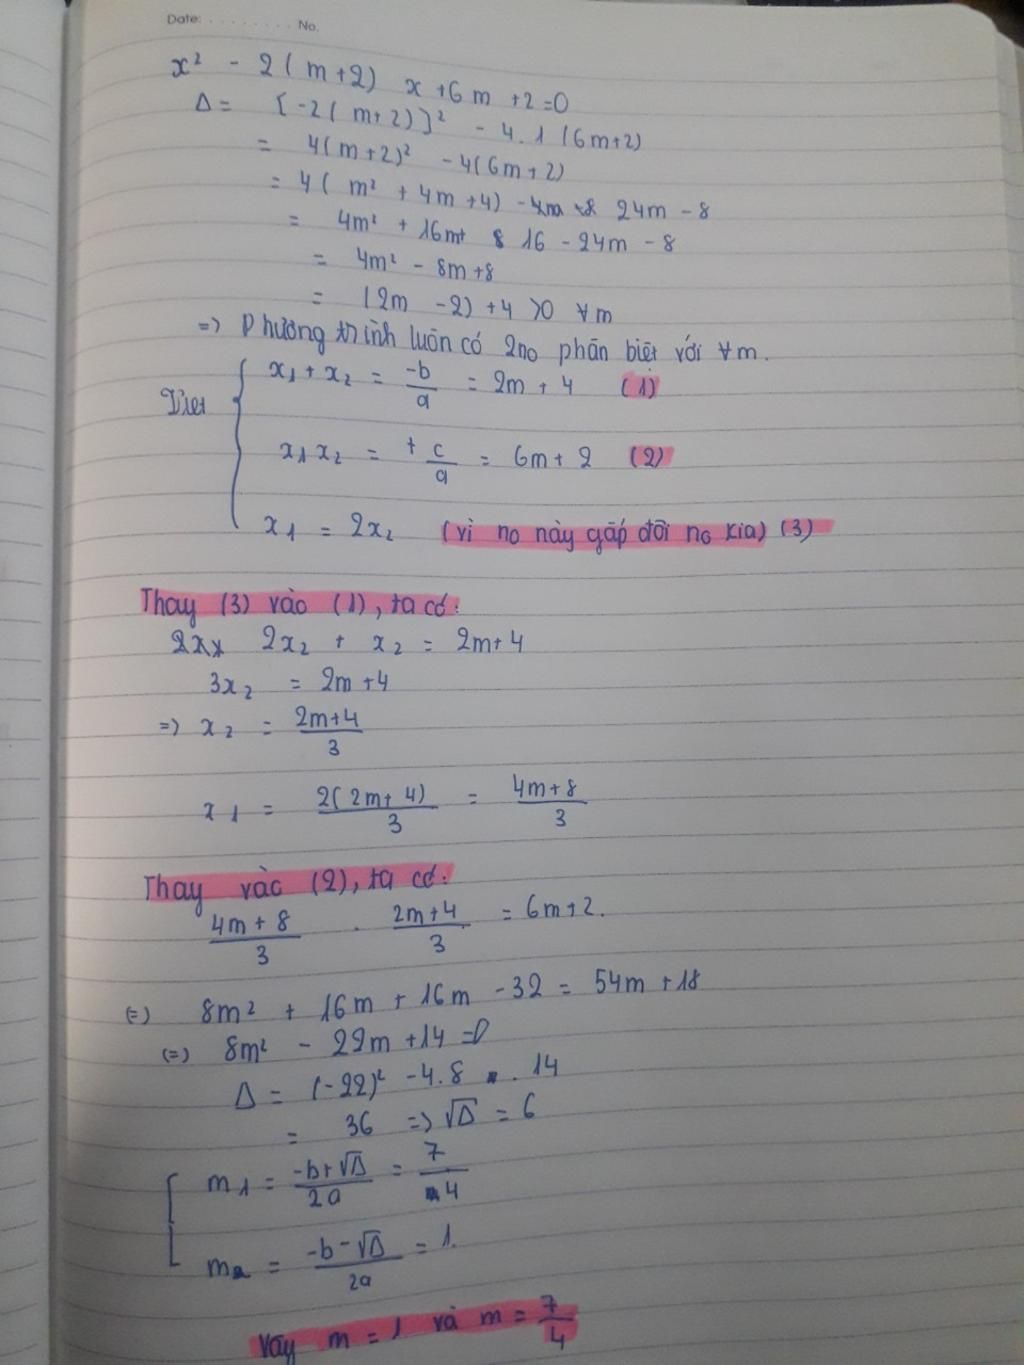 Date: ........ No.
x² - 2(m+2) x + 6m + 2 = 0
Δ = [-2(m+2)]² - 4.1(6m+2)
= 4(m+2)² - 4(6m+2)
= 4(m² + 4m + 4) - 24m - 8
= 4m² + 16m + 16 - 24m - 8
= 4m² - 8m + 8
= (2m - 2) + 4 > 0 ∀m
=> Phương trình luôn có 2no phân biệt với ∀m.
x1 + x2 = -b/a = 2m + 4 (1)
Viet
x1 x2 = + c/a = 6m + 2 (2)
x1 = 2x2 (vì no này gấp đôi no kia) (3)
Thay (3) vào (1), ta có:
2x2 + x2 = 2m+4
3x2 = 2m+4
=> x2 = 2m+4/3
x1 = 2(2m+4)/3 = 4m+8/3
Thay vào (2), ta có:
4m+8/3 . 2m+4/3 = 6m+2.
(=) 8m² + 16m + 16m - 32 = 54m + 18
(=) 8m² - 22m + 14 = 0
Δ = (-22)² - 4.8 . 14
= 36 => √Δ = 6
m1 = -b+√Δ/2a = 7/4
m2 = -b-√Δ/2a = 1.
Vậy m = 1 và m = 7/4